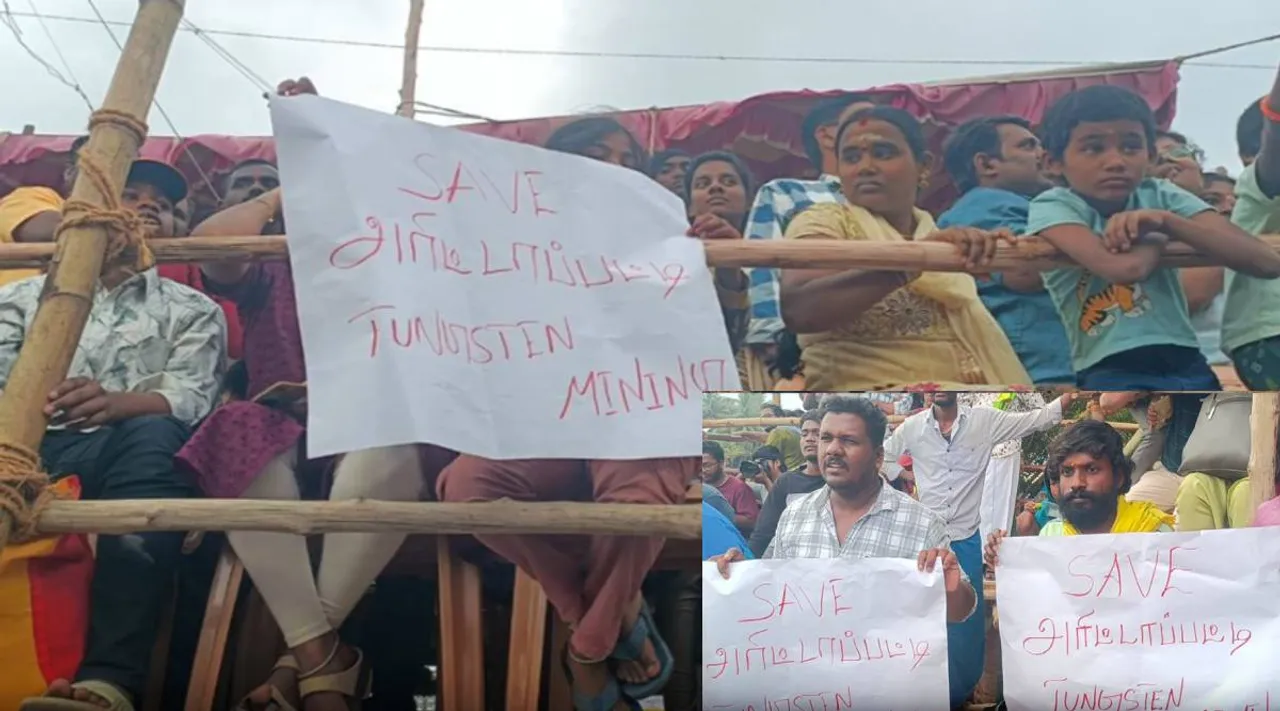 SAVE
அரிட்டாப்பட்டி
TUNGSTEN
MINING
SAVE
அரிட்டாப்பட்டி
TUNGSTEN
SAVE
அரிட்டாப்பட்டி
TUNGSTEN